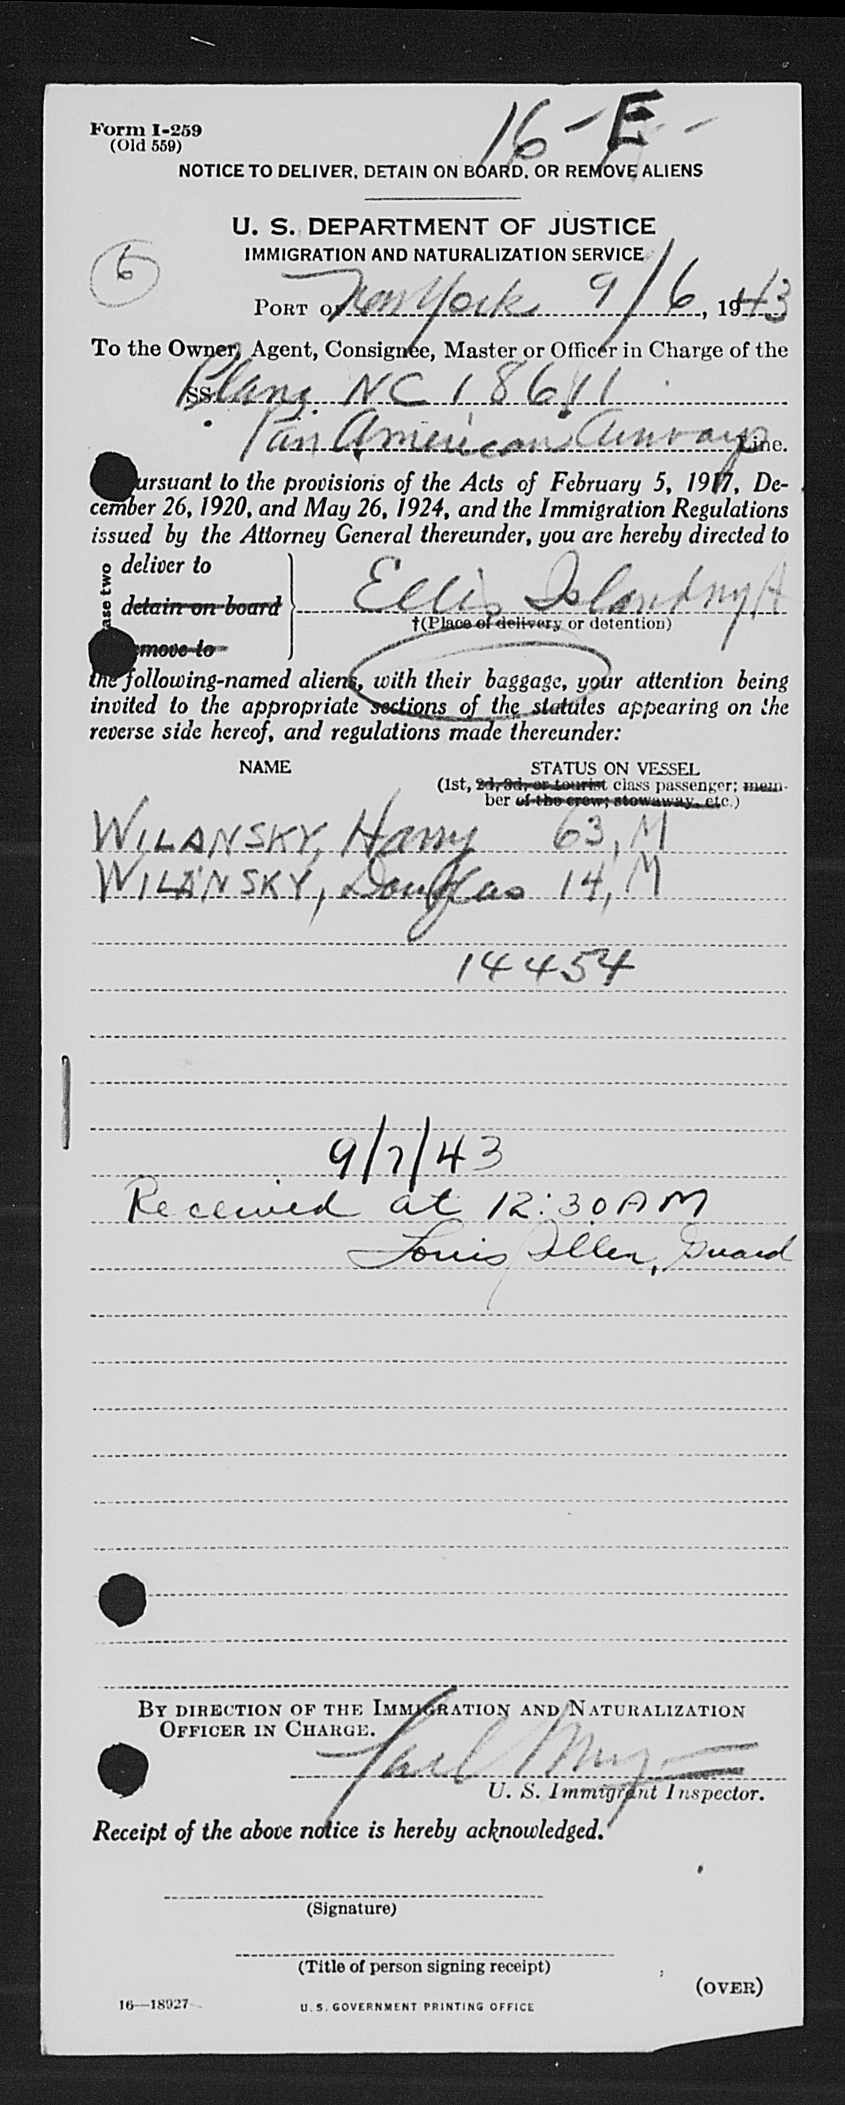 16-E-
Form I-259
(Old 559)
NOTICE TO DELIVER, DETAIN ON BOARD, OR REMOVE ALIENS
U. S. DEPARTMENT OF JUSTICE
IMMIGRATION AND NATURALIZATION SERVICE
6
PORT OF New York 9/6, 1943
To the Owner, Agent, Consignee, Master or Officer in Charge of the
SS. Plane NC 18611
Pan American Airways Line.
ursuant to the provisions of the Acts of February 5, 1917, De-
cember 26, 1920, and May 26, 1924, and the Immigration Regulations
issued by the Attorney General thereunder, you are hereby directed to
ase two
deliver to
detain on board
move to
Ellis Island ny
†(Place of delivery or detention)
the following-named aliens, with their baggage, your attention being
invited to the appropriate sections of the statutes appearing on the
reverse side hereof, and regulations made thereunder:
NAME STATUS ON VESSEL
(1st, 2d, 3d, or tourist class passenger; mem-
ber of the crew; stowaway, etc.)
WILANSKY, Harry 63, M
WILANSKY, Douglas 14, M
14454
9/7/43
Received at 12:30 AM
Louis Allen, Guard
BY DIRECTION OF THE IMMIGRATION AND NATURALIZATION
OFFICER IN CHARGE.
U. S. Immigrant Inspector.
Receipt of the above notice is hereby acknowledged.
(Signature)
(Title of person signing receipt)
(OVER)
16—18927
U. S. GOVERNMENT PRINTING OFFICE